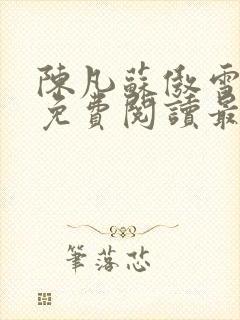 陳凡蘇傲雪
免費閱讀最
筆落芯